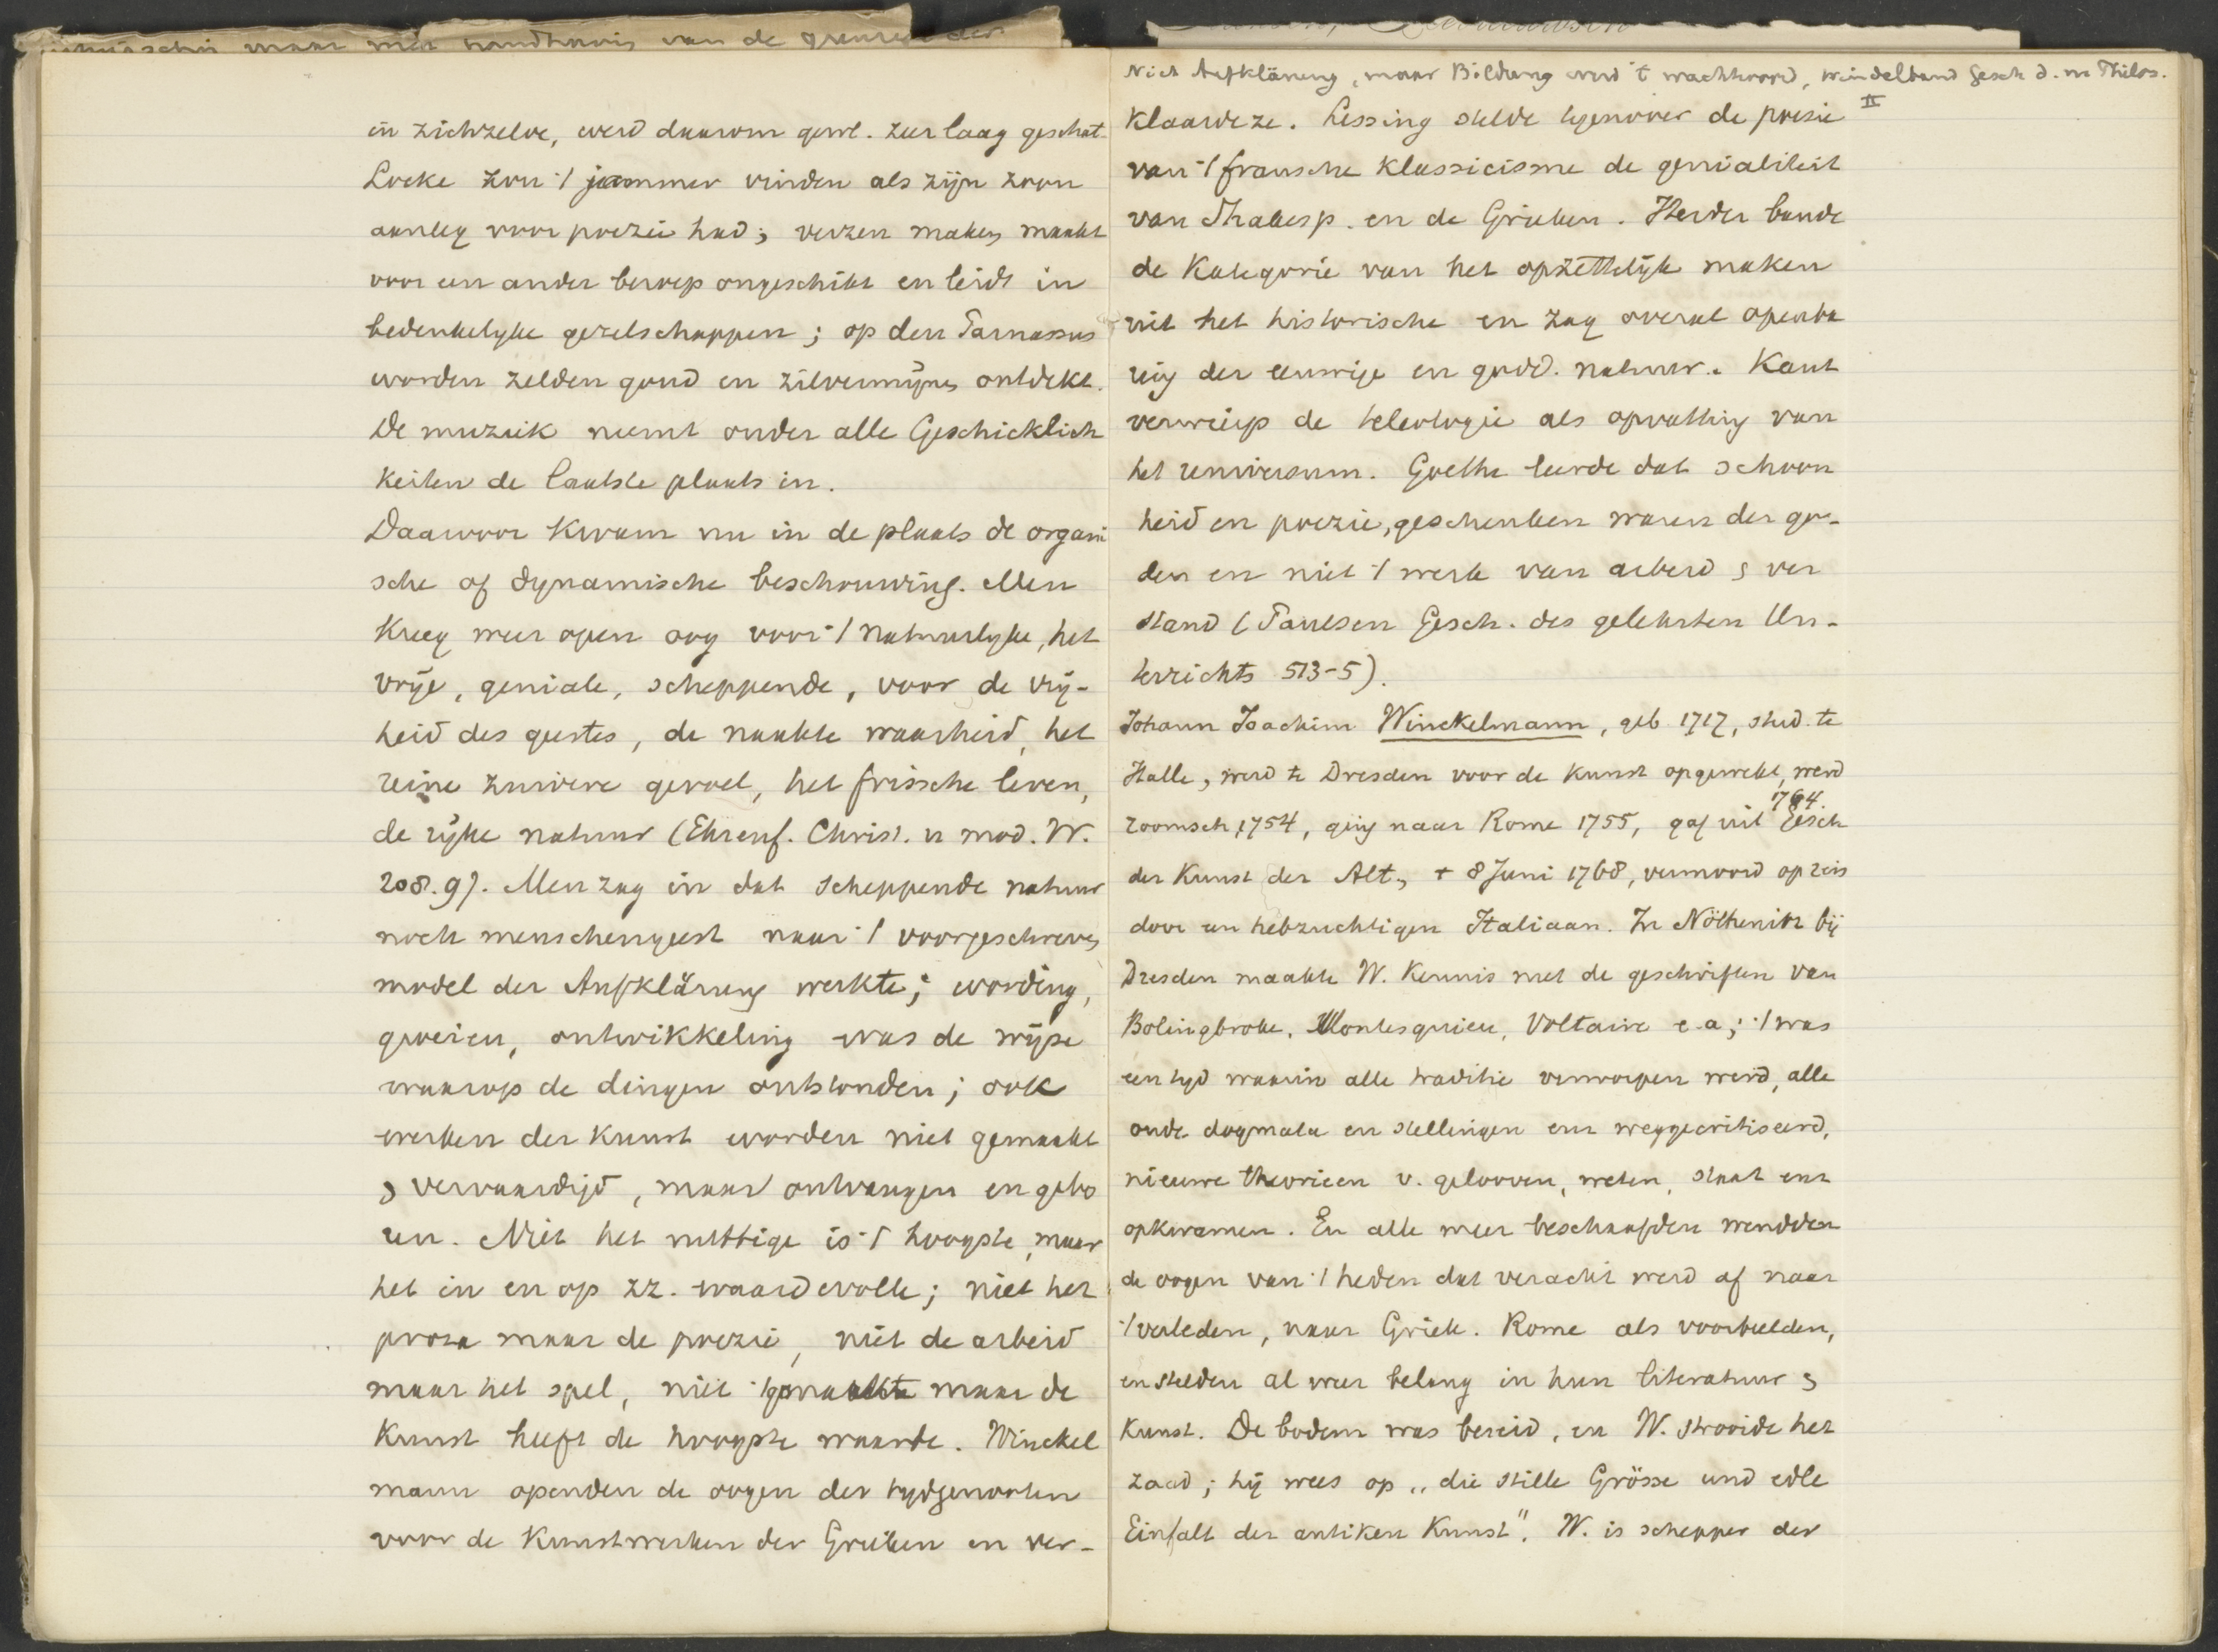 in zichzelve, werd daarom gew. zeer laag geschat.
Locke zou 't jammer vinden als zijn zoon
aanleg voor poezie had; verzen maken maakt
voor een ander beroep ongeschikt en leidt in
bedenkelyke gezelschappen; op den Parnassus
worden zelden goud en zilvermijnen ontdekt.
De muziek neemt onder alle Geschicklich
keiten de laatste plaats in.
Daarvoor kwam nu in de plaats de organi
sche of dynamische beschouwing. Men
kreeg meer open oog voor 't natuurlyke, het
vrije, geniale, scheppende, voor de vrij-
heid des geestes, de naakte waarheid, het
reine zuivere gevoel, het frissche leven,
de rijke natuur (Ehrenf. Christ. u mod. W.
208.9). Men zag in dat scheppende natuur
noch menschengeest naar 't voorgeschreven
model der Aufklärung werkte; wording,
groeien, ontwikkeling was de wijze
waarop de dingen ontstonden; ook
werken der kunst worden niet gemaakt
& vervaardijd, maar ontvangen en gebo
ren. Niet het nuttige is 't hoogste, maar
het in en op zz. waardevolle; niet het
proza maar de poezie, niet de arbeid
maar het spel, niet 't gemaakte maar de
Kunst heeft de hoogste waarde. Winckel
mann openden de oogen der tydgenooten
voor de Kunstwerken der Grieken en ver-
Nich Aufklärung, maar Bildung werd 't wachtwoord, Windelband Gesch d. n Philos.
II
klaardeze. Lessing stelde tegenover de poesie
van 't fransche klassicisme de genialiteit
van Shakesp. en de Grieken. Herder bande
de Kategorie van het opzettelijk maken
uit het historische en zag overal openba
ring der eeuwige en godd. natuur. Kant
verwierp de teleologie als opvatting van
het universum. Goethe leerde dat schoon
heid en poezie, geschenken waren der go-
den en niet 't werk van arbeid & ver
stand (Paulsen Gesch. des gelehrten Un-
terrichts 513-5).
Johann Joachim Winckelmann, geb 1717, stud. te
Halle, werd te Dresden voor de kunst opgewekt, werd
764.
roomsch, 1754, ging naar Rome 1755, gaf uit Gesch
der Kunst der Alt., + 8 Juni 1768, vermoord op reis
door een hebzuchtigen Italiaan. In Nöthenitz bij
Dresden maakte W. kennis met de geschriften van
Bolingbroke, Montesquieu, Voltaire e.a; 't was
een tyd waarin alle traditie verworpen werd, alle
oude dogmata en stellingen enz weggecritiseerd,
nieuwe theorieen v. gelooven, weten, staat enz
opkwamen. En alle meer beschaafden wendden
de oogen van 't heden dat veracht werd af naar
't verleden, naar Griek. Rome als voorbeelden,
en stelden al weer belang in hun literatuur &
kunst. De bodem was bereid, en W. strooide het
zaad; hij wees op „die stille Grösse und edle
Einfalt der antiken Kunst". W. is schepper der